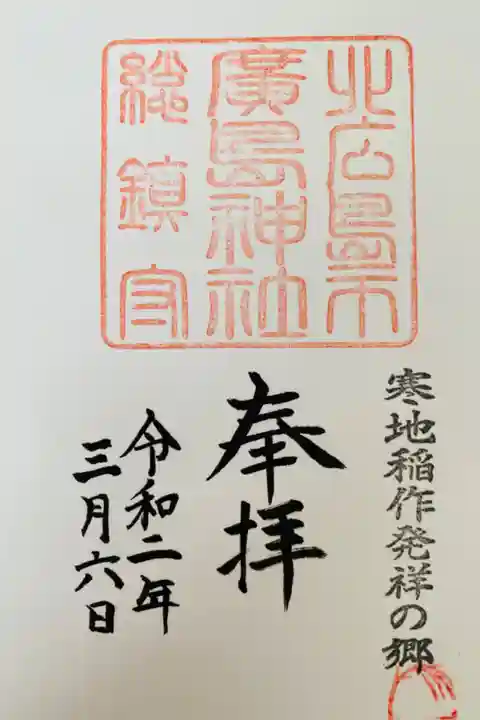 北広島市
廣島神社
総鎮守
寒地稲作発祥の郷
奉拝
令和二年
三月六日